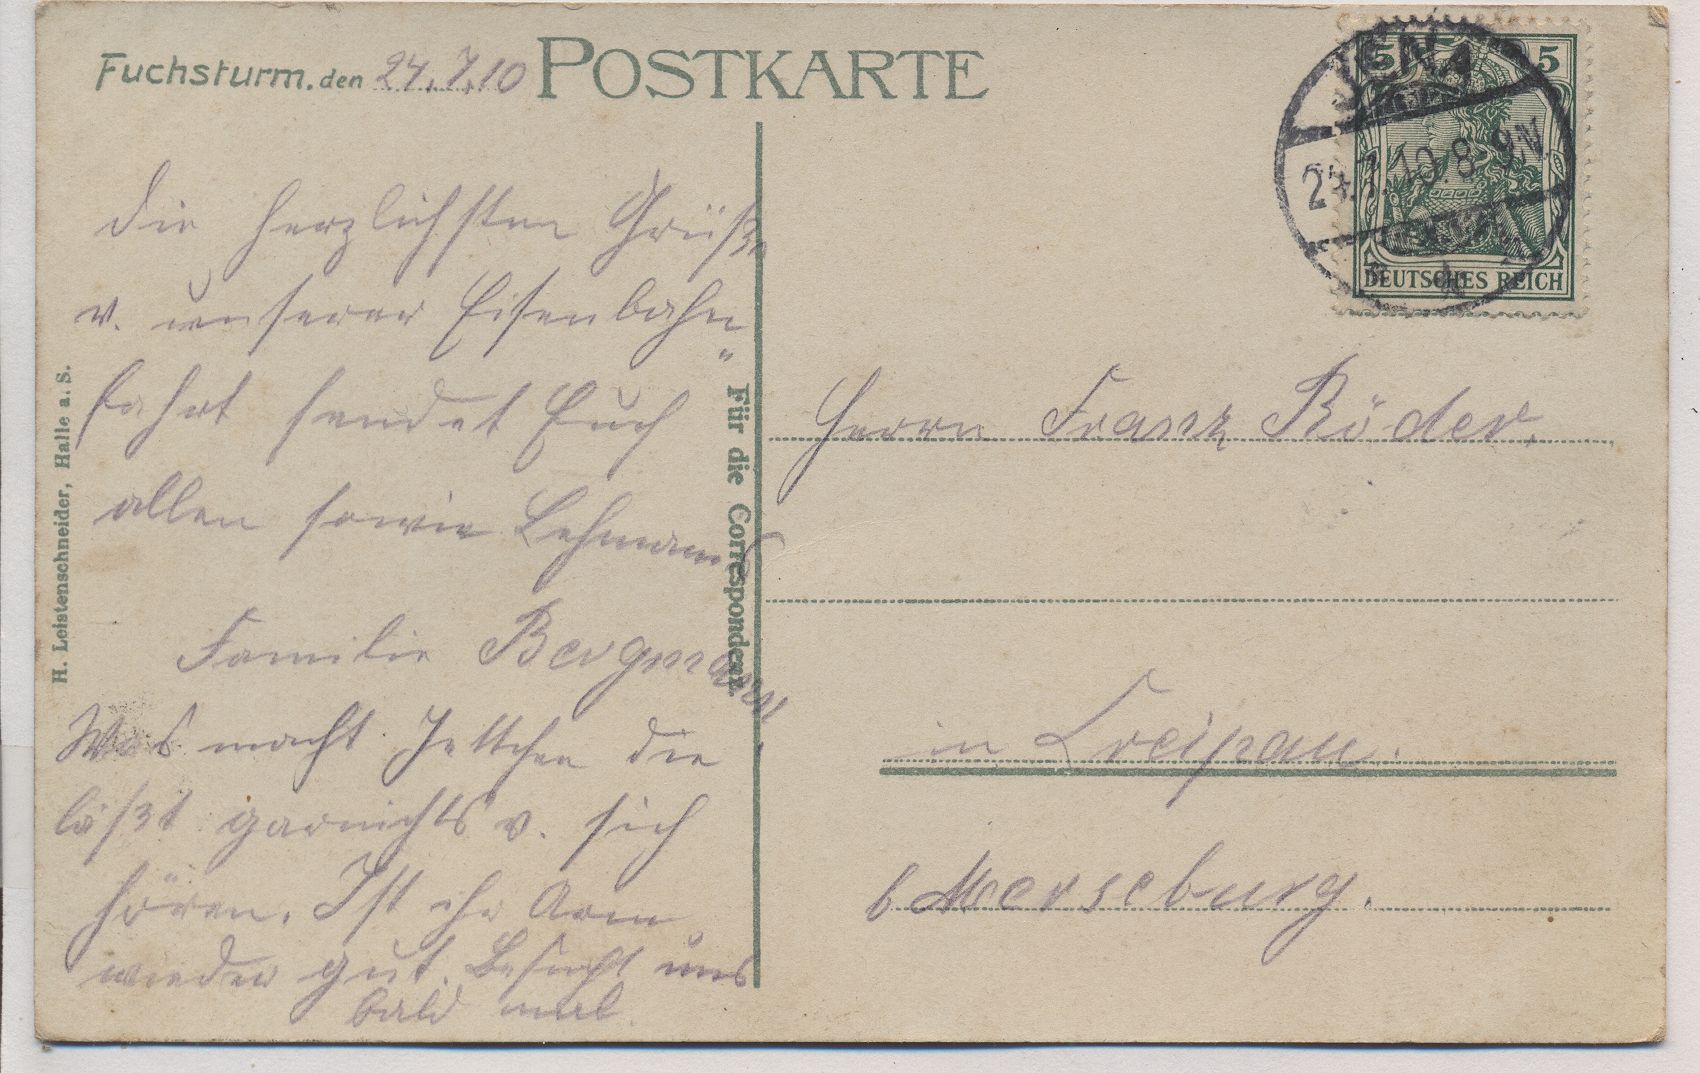 Fuchsturm, den 24.7.10
POSTKARTE
die herzlichsten Grüße
v. unserer Eisenbahn„
fahrt sendet Euch
allen sowie Lehmanns
Familie Bergmann
Was macht Jettchen die
läßt garnichts v. sich
hören. Ist ihr Arm
wieder gut. Besucht uns
bald mal.
H. Leistenschneider, Halle a. S.
Für die Correspondenz.
JENA
24.7.10.8-9N.
5 5
DEUTSCHES REICH
Herrn Franz Röder.
in Kreipau.
b Merseburg.